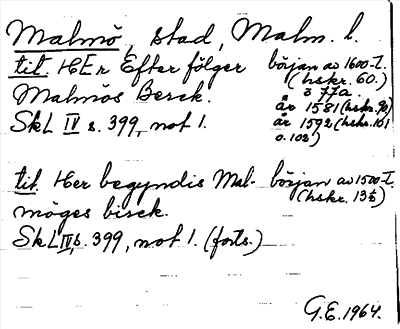 Malmö, stad, Malm. l.
tit. HEr Efter fölger början av 1600-t.
(hskr. 60.)
Malmös Berck. ö 77a.
år 1581 (hskr. 90)
SkL IV s. 399, not 1. år 1592 (hskr. 101
o. 102)
tit. Her begyndis Mal- början av 1500-t.
(hskr. 135)
möges birck.
SkL IV, s. 399, not 1. (forts.)
G.E. 1964.